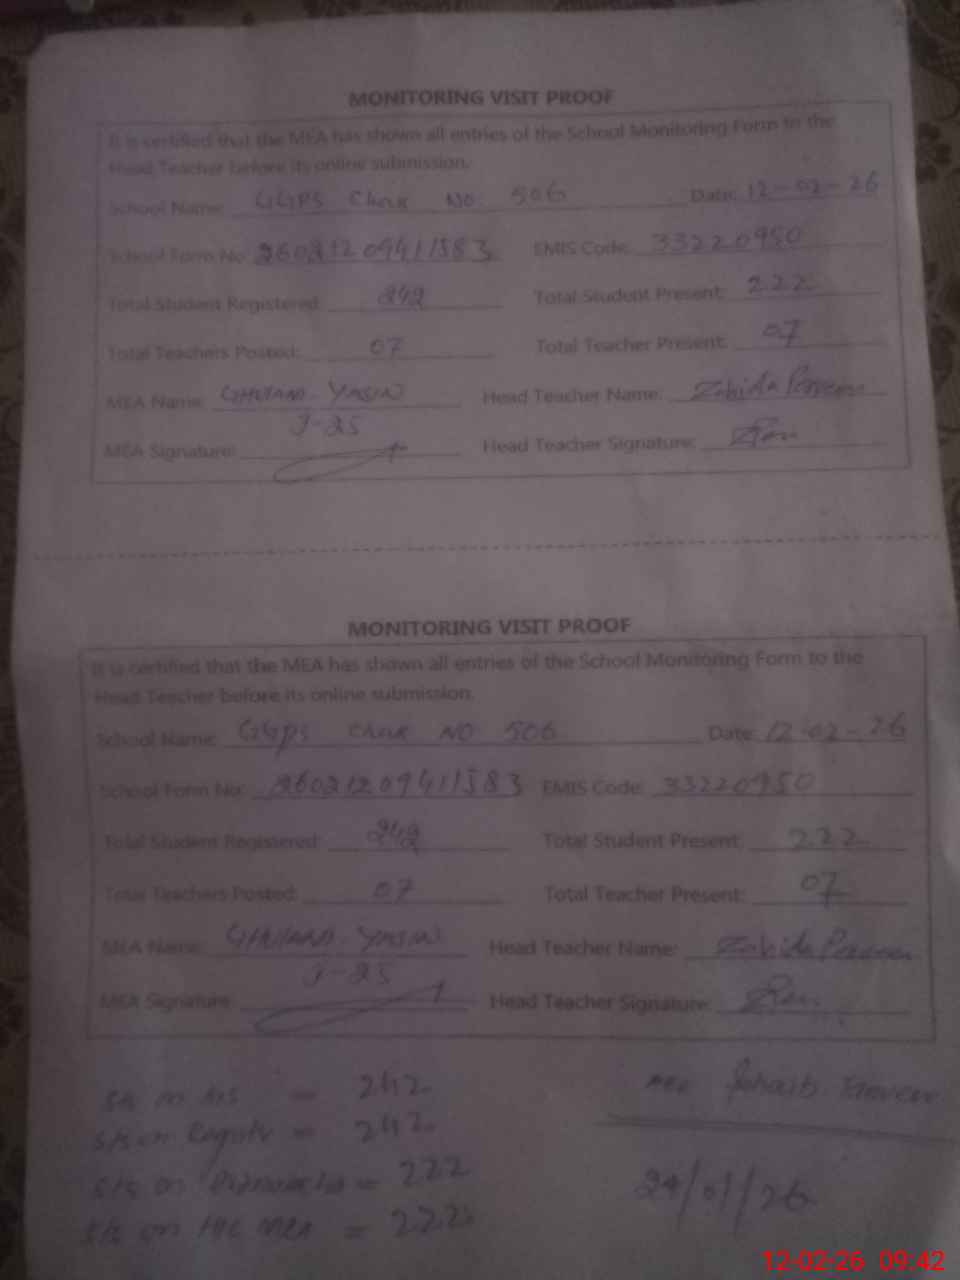 MONITORING VISIT PROOF
It is certified that the MEA has shown all entries of the School Monitoring Form to the
Head Teacher before its online submission.
School Name: GGPS Chak No: 506 Date: 12-02-26
School Form No: 26021209411583 EMIS Code: 33220950
Total Student Registered: 242 Total Student Present: 222
Total Teachers Posted: 07 Total Teacher Present: 07
MEA Name: GHULAM YASIN Head Teacher Name: Zahida Perveen
J-25
MEA Signature: Head Teacher Signature:
MONITORING VISIT PROOF
It is certified that the MEA has shown all entries of the School Monitoring Form to the
Head Teacher before its online submission.
School Name: GGPS Chak NO 506 Date: 12-02-26
School Form No: 26021209411583 EMIS Code: 33220950
Total Student Registered: 242 Total Student Present: 222
Total Teachers Posted: 07 Total Teacher Present: 07
MEA Name: GHULAM YASIN Head Teacher Name: Zahida Perveen
J-25
MEA Signature: Head Teacher Signature:
on = 242
on = 242
on = 222
on MEA = 222
/01/26
12-02-26 09:42